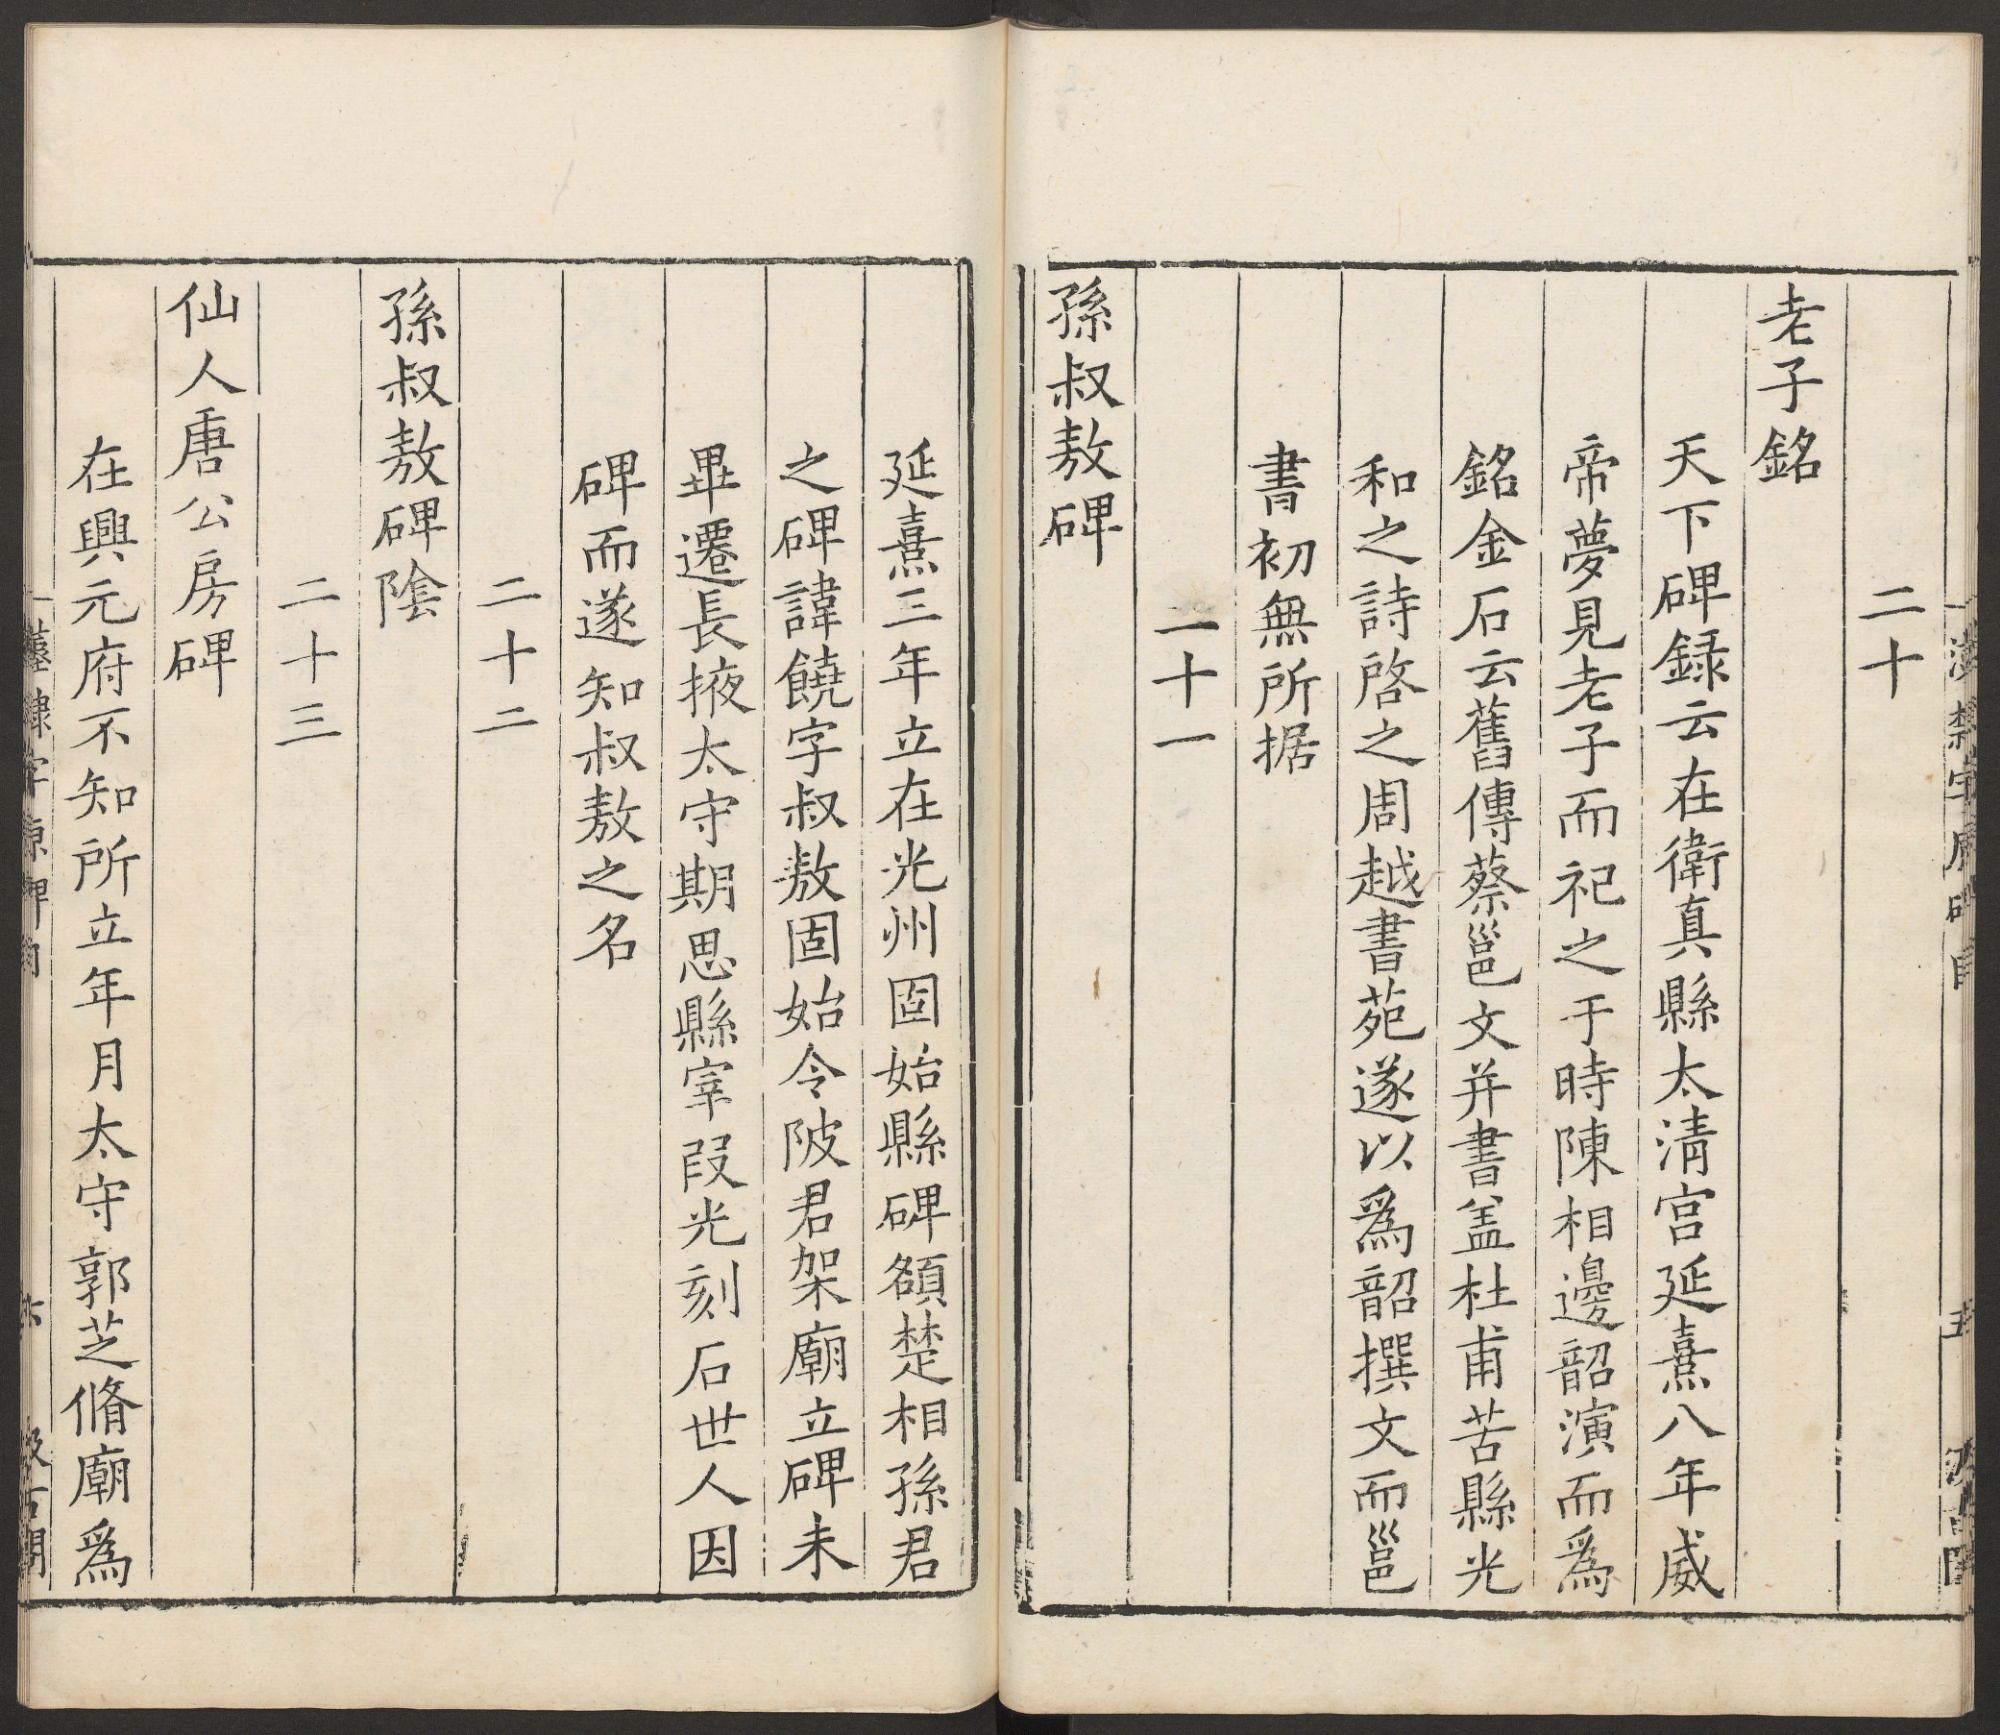 二十
老子銘
天下碑録云在衛真縣太清宮延熹八年威
帝夢見老子而祀之于時陳相邊韶演而爲
銘金石云舊傳蔡邕文并書盖杜甫苦縣光
和之詩啓之周越書苑遂以爲韶撰文而邕
書初無所据
二十一
孫叔敖碑
延熹三年立在光州固始縣碑額楚相孫君
之碑諱饒字叔敖固始令陂君架廟立碑未
畢遷長掖太守期思縣宰叚光刻石世人因
碑而遂知叔敖之名
二十二
孫叔敖碑隂
二十三
仙人唐公房碑
在興元府不知所立年月太守郭芝脩廟爲